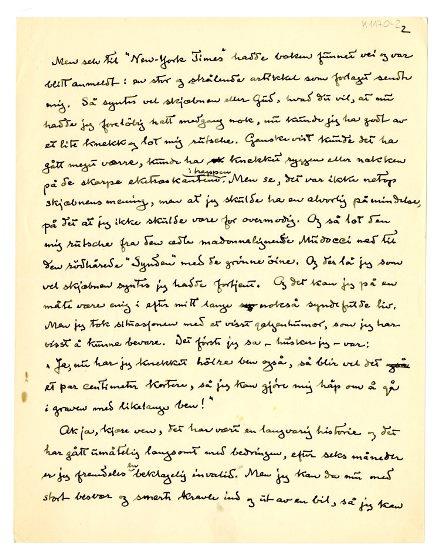 2
Men selv til "New-York Times" hadde boken funnet vei og var
blitt anmeldt i en stor og strålende artikkel som forlaget sendte
mig. Så syntes vel skjæbnen eller Gud, hvad du vil, at nu
hadde jeg foreløbig hatt medgang nok, nu kunde jeg ha godt av
et lite knekk og lot mig rutsche. Ganske visst kunde det ha
gått meget værre, kunde ha knekket ryggen eller nakken
i trappen
på de skarpe ekstraskantene. Men se, det var ikke netop
skjæbnens mening, men at jeg skulde ha en alvorlig påmindelse,
på det at jeg ikke skulde være for overmodig. Og så lot den
mig rutsche fra den ædle madonnalignende Mudocci ned til
den rödhårede "Synden" med de grønne öine. Og der lå jeg som
vel skjæbnen syntes jeg hadde fortjent. Og det kan jeg på en
måte være enig i efter mitt lange nokså syndefulde liv.
Men jeg tok situasjonen med et visst galgenhumor, som jeg har
visst å kunne bevare. Det förste jeg sa – husker jeg – var:
"Ja, nu har jeg knekket höire ben også, så blir vel det
et par centimeter kortere, så jeg kan gjöre mig håp om å gå
i graven med likelange ben!"
Ak ja, kjære ven, det har vært en langvarig historie og det
har gått umåtelig langsomt med bedringen, efter seks måneder
er jeg fremdeles en beklagelig invalid. Men jeg kan da nu med
stort besvær og smerte kravle ind og ut av en bil, så jeg kan